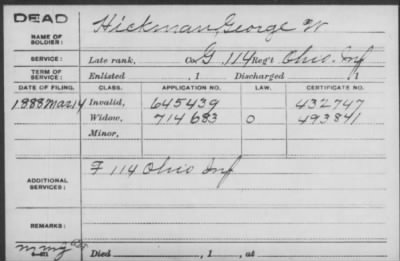 DEAD
NAME OF SOLDIER: Hickman, George W
SERVICE: Late rank, Co. G, 114 Reg't Ohio Inf
TERM OF SERVICE: Enlisted , 1 Discharged , 1
DATE OF FILING. CLASS. APPLICATION NO. LAW. CERTIFICATE NO.
1888 Mar 14 Invalid, 645439 432747
Widow, 714683 O 493841
Minor,
ADDITIONAL SERVICES: F 114 Ohio Inf
REMARKS:
Died , 1 , at